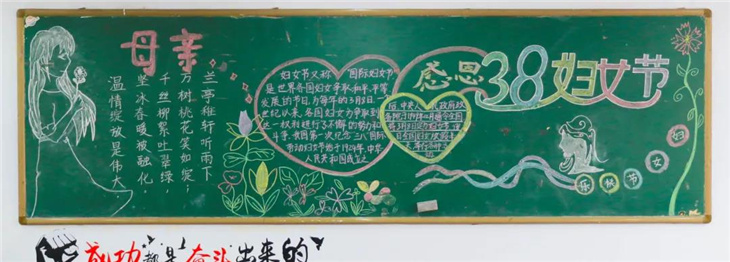 母亲
兰亭稚轩听雨下
万树桃花笑如靛；
千丝柳絮吐翠绿
坚冰春暖被融化．
温情绽放是伟大．
妇女节又称 国际妇女节
是世界各国妇女争取和平、平等
发展的节日，为每年的3月8日．
世纪以来，各国妇女为争取到
这一权利进行了不懈的努力和
斗争，我国第一次纪念三八国际
劳动妇女节始于1924年，中华
人民共和国成立之
后，中央人 民政府政
感恩38妇女节
乐 快 节 女 妇
成功都是奋斗出来的